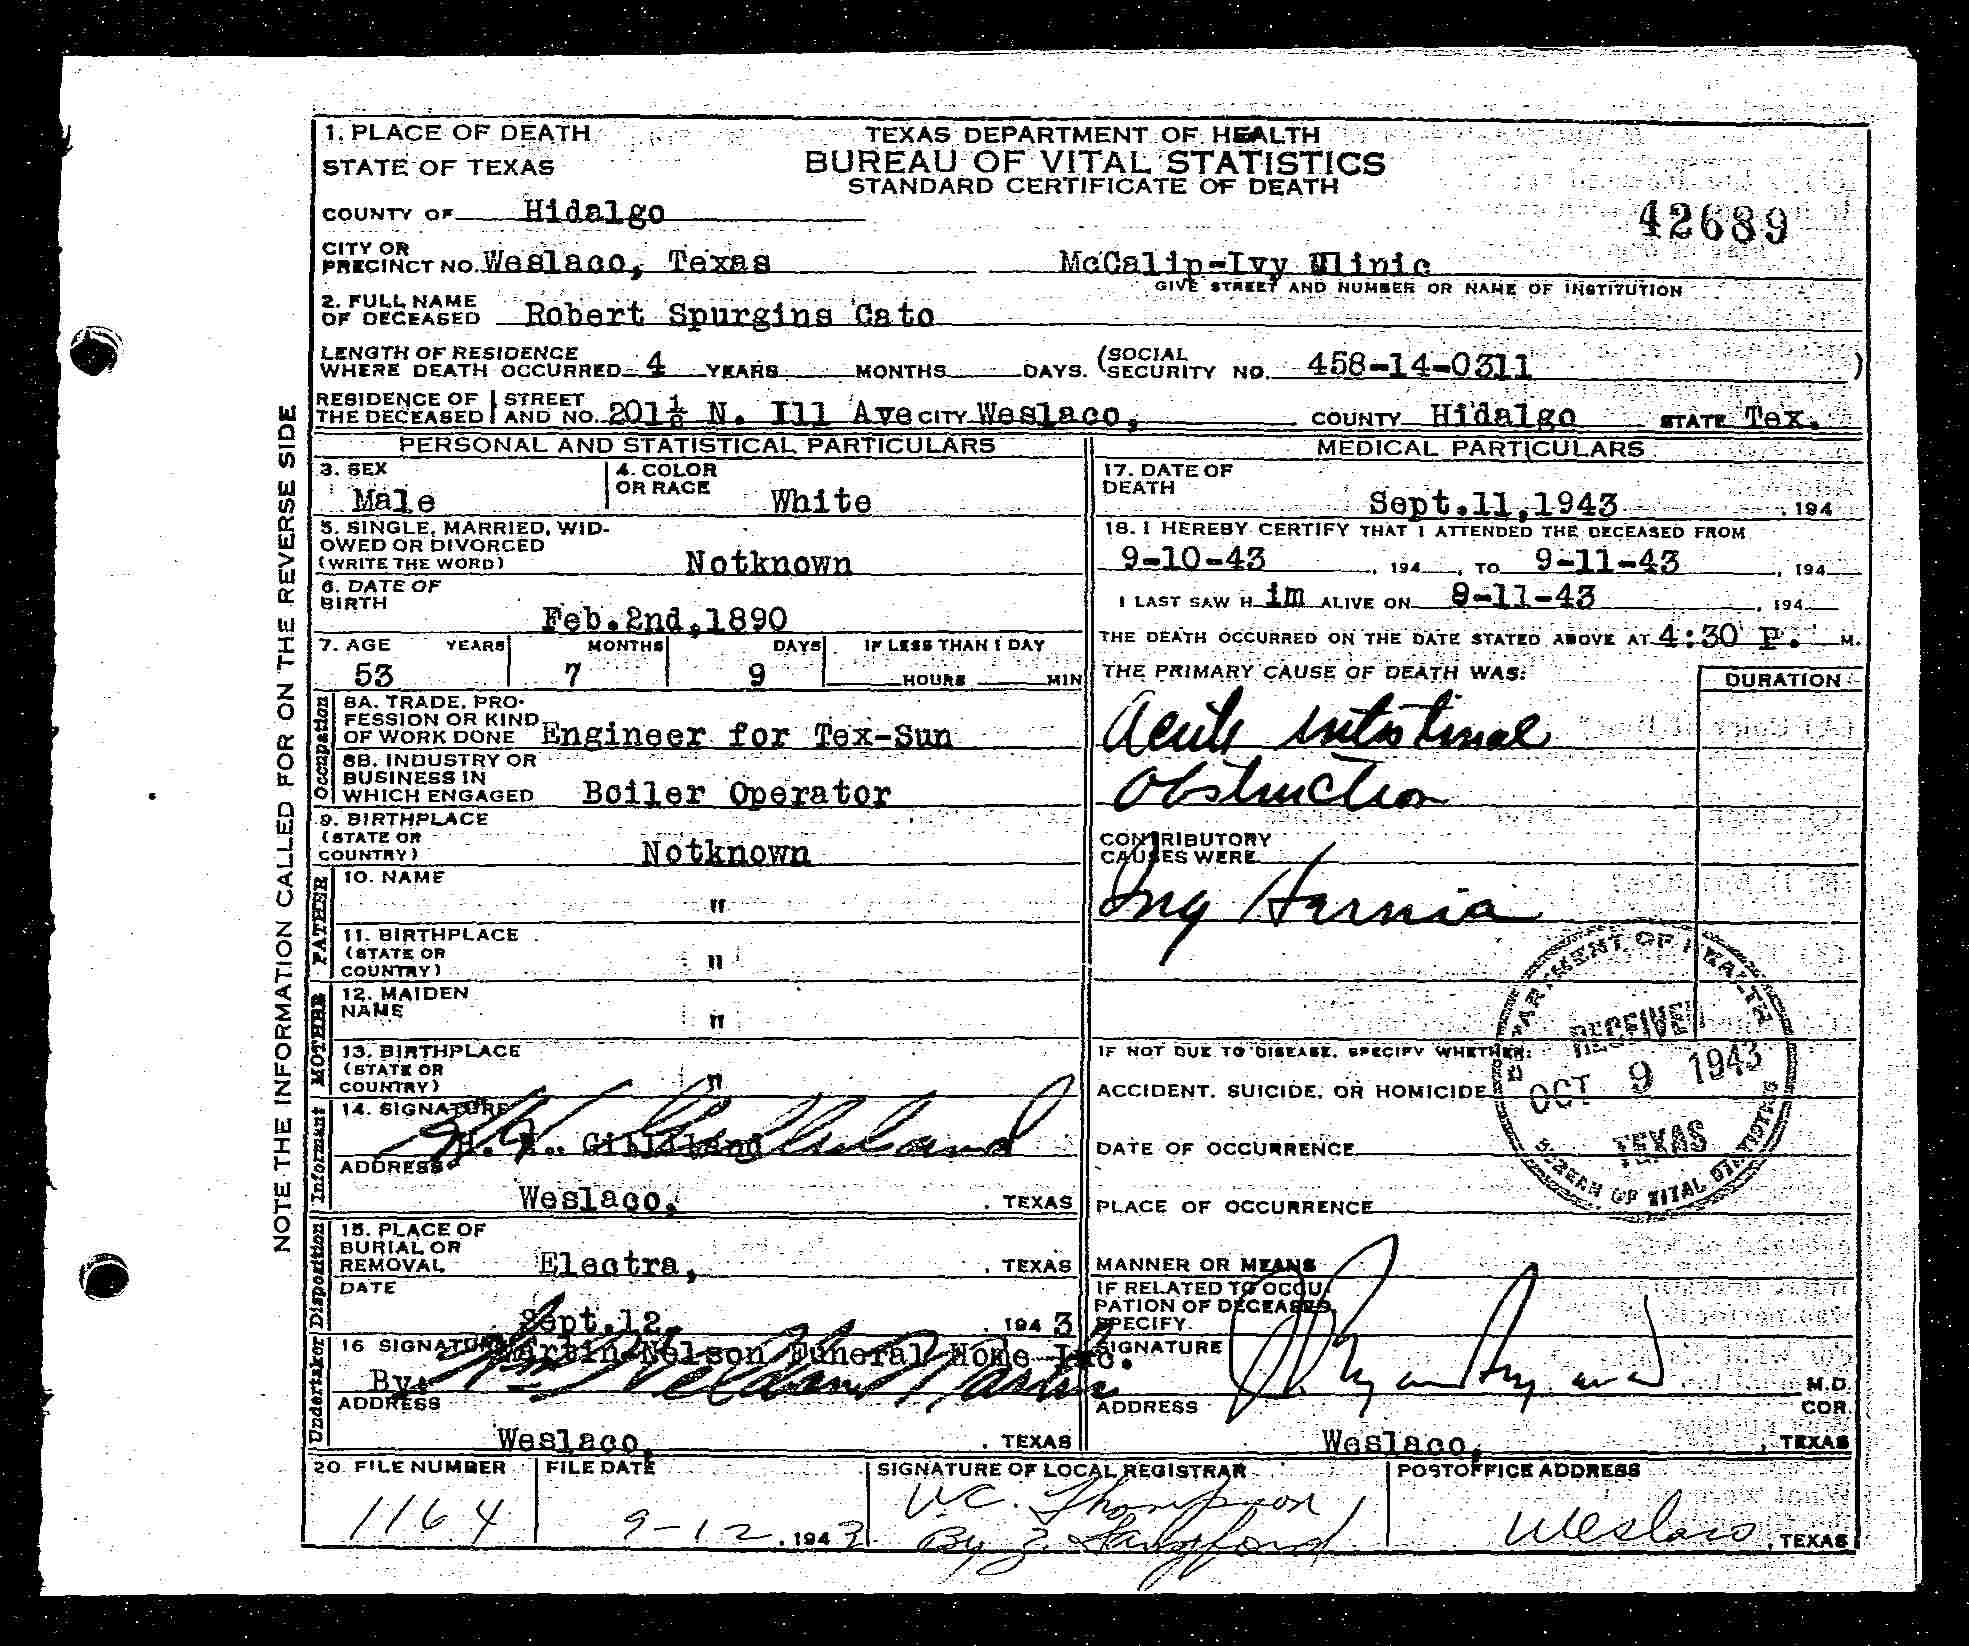 1. PLACE OF DEATH
STATE OF TEXAS
TEXAS DEPARTMENT OF HEALTH
BUREAU OF VITAL STATISTICS
STANDARD CERTIFICATE OF DEATH
COUNTY OF Hidalgo
42689
CITY OR
PRECINCT NO. Weslaco, Texas McCalip-Ivy Clinic
GIVE STREET AND NUMBER OR NAME OF INSTITUTION
2. FULL NAME
OF DECEASED Robert Spurgins Cato
LENGTH OF RESIDENCE
WHERE DEATH OCCURRED 4 YEARS MONTHS DAYS. (SOCIAL SECURITY NO. 458-14-0311 )
RESIDENCE OF THE DECEASED STREET AND NO. 201½ N. Ill Ave CITY Weslaco, COUNTY Hidalgo STATE Tex.
NOTE THE INFORMATION CALLED FOR ON THE REVERSE SIDE
PERSONAL AND STATISTICAL PARTICULARS
3. SEX
Male
4. COLOR
OR RACE White
5. SINGLE, MARRIED, WID-
OWED OR DIVORCED
(WRITE THE WORD) Notknown
6. DATE OF
BIRTH
Feb.2nd,1890
7. AGE YEARS MONTHS DAYS IF LESS THAN 1 DAY
53 7 9 HOURS MIN
Occupation
8A. TRADE, PRO-
FESSION OR KIND
OF WORK DONE Engineer for Tex-Sun
8B. INDUSTRY OR
BUSINESS IN
WHICH ENGAGED Boiler Operator
9. BIRTHPLACE
(STATE OR
COUNTRY) Notknown
FATHER
10. NAME
"
11. BIRTHPLACE
(STATE OR
COUNTRY) "
MOTHER
12. MAIDEN
NAME "
13. BIRTHPLACE
(STATE OR
COUNTRY) "
Informant
14. SIGNATURE
Gilliland
ADDRESS
Weslaco, , TEXAS
Disposition
15. PLACE OF
BURIAL OR
REMOVAL Electra, , TEXAS
DATE
Sept.12, , 194 3
Undertaker
16 SIGNATURE Martin Nelson Funeral Home Inc.
By:
ADDRESS
Weslaco, , TEXAS
MEDICAL PARTICULARS
17. DATE OF
DEATH Sept.11,1943 , 194
18. I HEREBY CERTIFY THAT I ATTENDED THE DECEASED FROM
9-10-43 , 194 , TO 9-11-43 , 194
I LAST SAW H im ALIVE ON 9-11-43 , 194
THE DEATH OCCURRED ON THE DATE STATED ABOVE AT 4:30 P. M.
THE PRIMARY CAUSE OF DEATH WAS: DURATION
Acute intestinal
obstruction
CONTRIBUTORY
CAUSES WERE
Ing Hernia
IF NOT DUE TO DISEASE, SPECIFY WHETHER:
ACCIDENT, SUICIDE, OR HOMICIDE
DATE OF OCCURRENCE
PLACE OF OCCURRENCE
MANNER OR MEANS
IF RELATED TO OCCU-
PATION OF DECEASED,
SPECIFY
SIGNATURE
M.D.
ADDRESS COR.
Weslaco, , TEXAS
DEPARTMENT OF HEALTH
RECEIVED
OCT 9 1943
TEXAS
BUREAU OF VITAL STATISTICS
20 FILE NUMBER
1164
FILE DATE
9-12 , 194 3
SIGNATURE OF LOCAL REGISTRAR
W.C. Thompson
POSTOFFICE ADDRESS
Weslaco , TEXAS